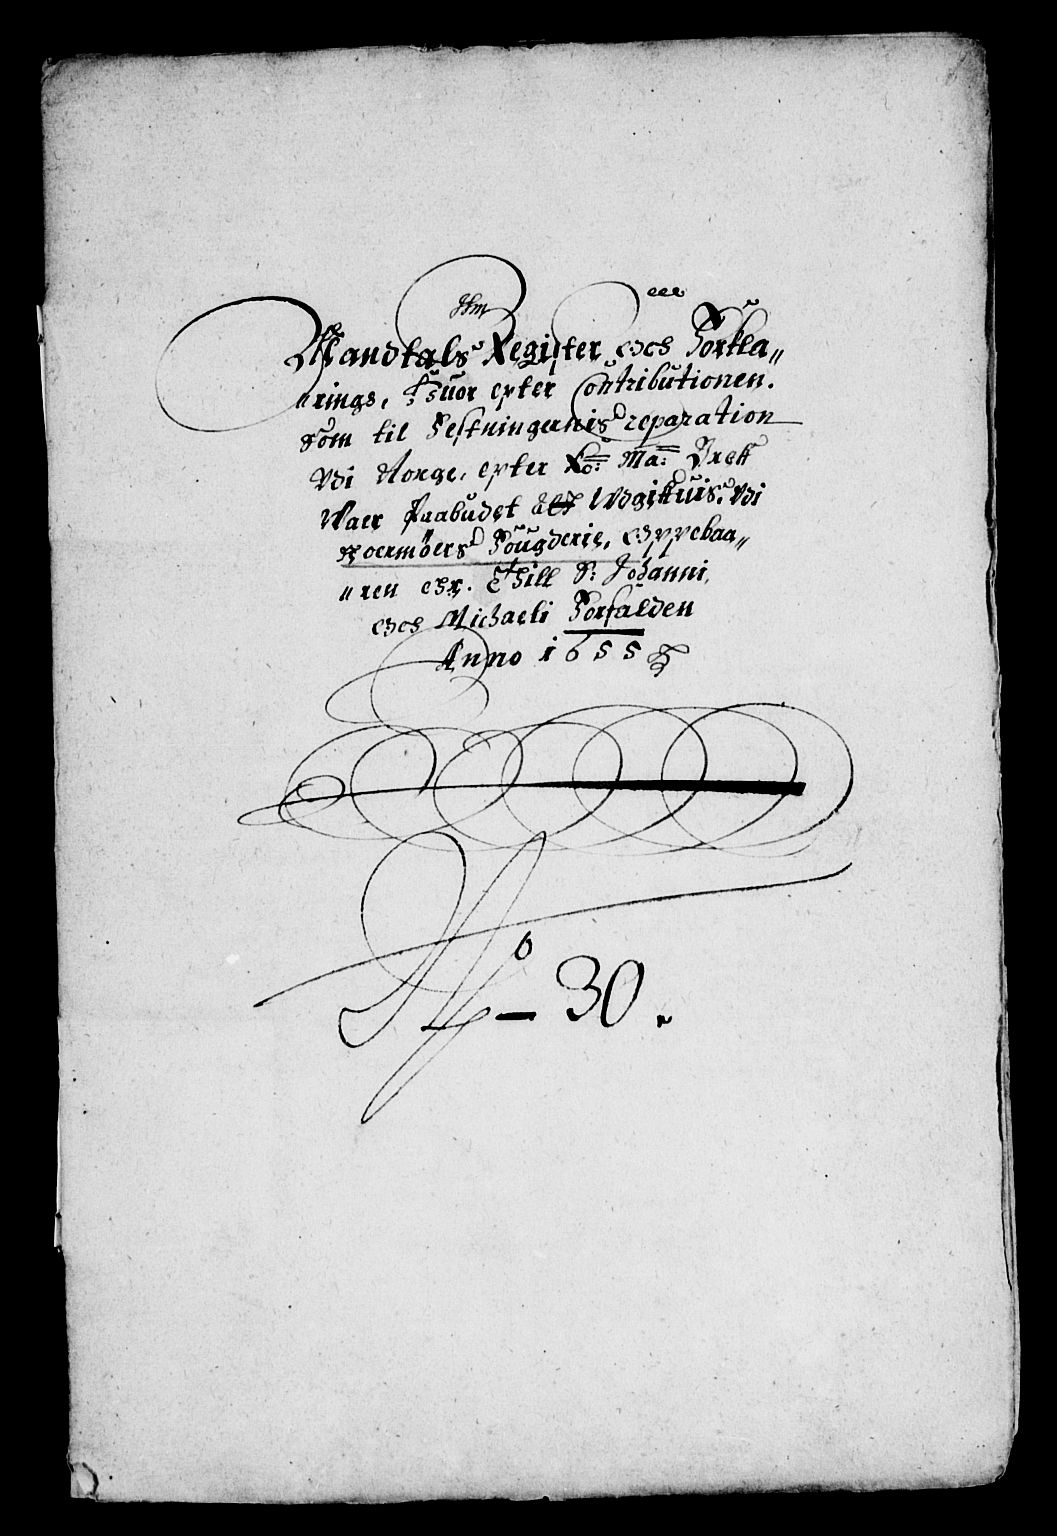 Mandtals Register och Forkla„
„rings, Huor epter Contributionen.
som til Festningernis reparation
Vdi Norge, epter Ko: Ma: Breff
Waer Paabudet Vdgiffuis. Vdi
Noermöers Fougderie, oppebaa„
„ren er. Thill S: Johanni,
och Michaeli Forfalden
Anno 1655
No 30.